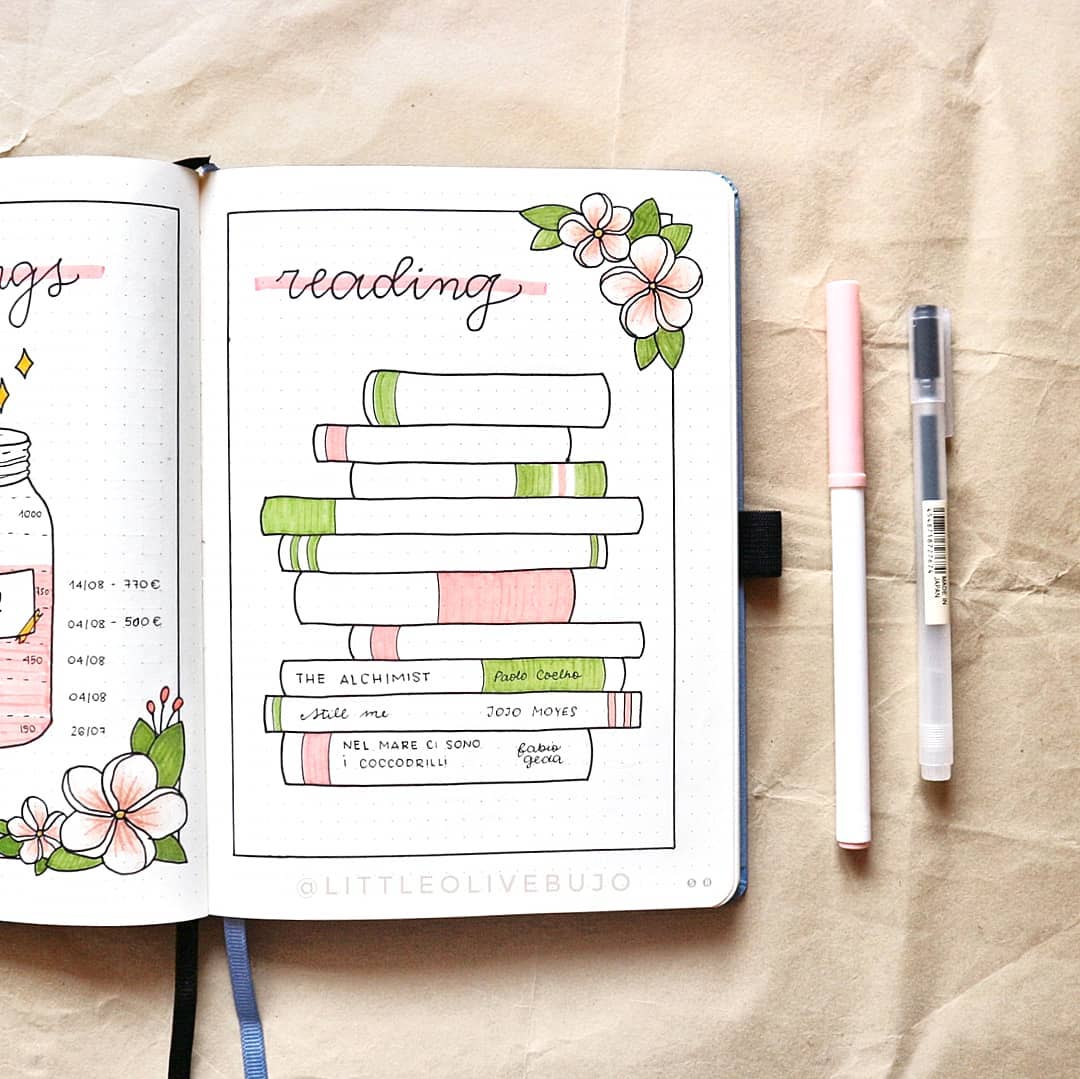 ngs
1000
750
450
150
14/08 - 770€
04/08 - 500€
04/08
04/08
26/07
reading
THE ALCHIMIST Paolo Coelho
Still me JOJO MOYES
NEL MARE CI SONO fabio
I COCCODRILLI geda
@LITTLEOLIVEBUJO
MADE IN
JAPAN